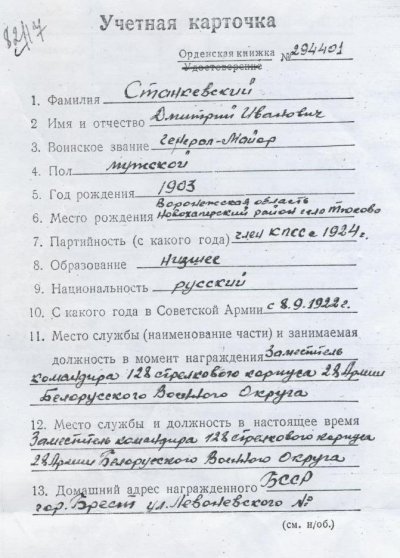 82/17
Учетная карточка
Орденская книжка
Удостоверение № 294401
1. Фамилия Станкевский
2 Имя и отчество Дмитрий Иванович
3. Воинское звание Генерал-Майор
4. Пол мужской
5. Год рождения 1903
Воронежская область
6. Место рождения Новохоперский район село Тюково
7. Партийность (с какого года) член КПСС с 1924 г.
8. Образование низшее
9. Национальность русский
10. С какого года в Советской Армии с 8.9.1922 г.
11. Место службы (наименование части) и занимаемая
должность в момент награждения Заместитель
командира 128 стрелкового корпуса 28 Армии
Белорусского Военного Округа
12. Место службы и должность в настоящее время
Заместитель командира 128 стрелкового корпуса
28 Армии Белорусского Военного Округа
13. Домашний адрес награжденного БССР
гор. Брест ул. Леваневского №
(см. н/об.)